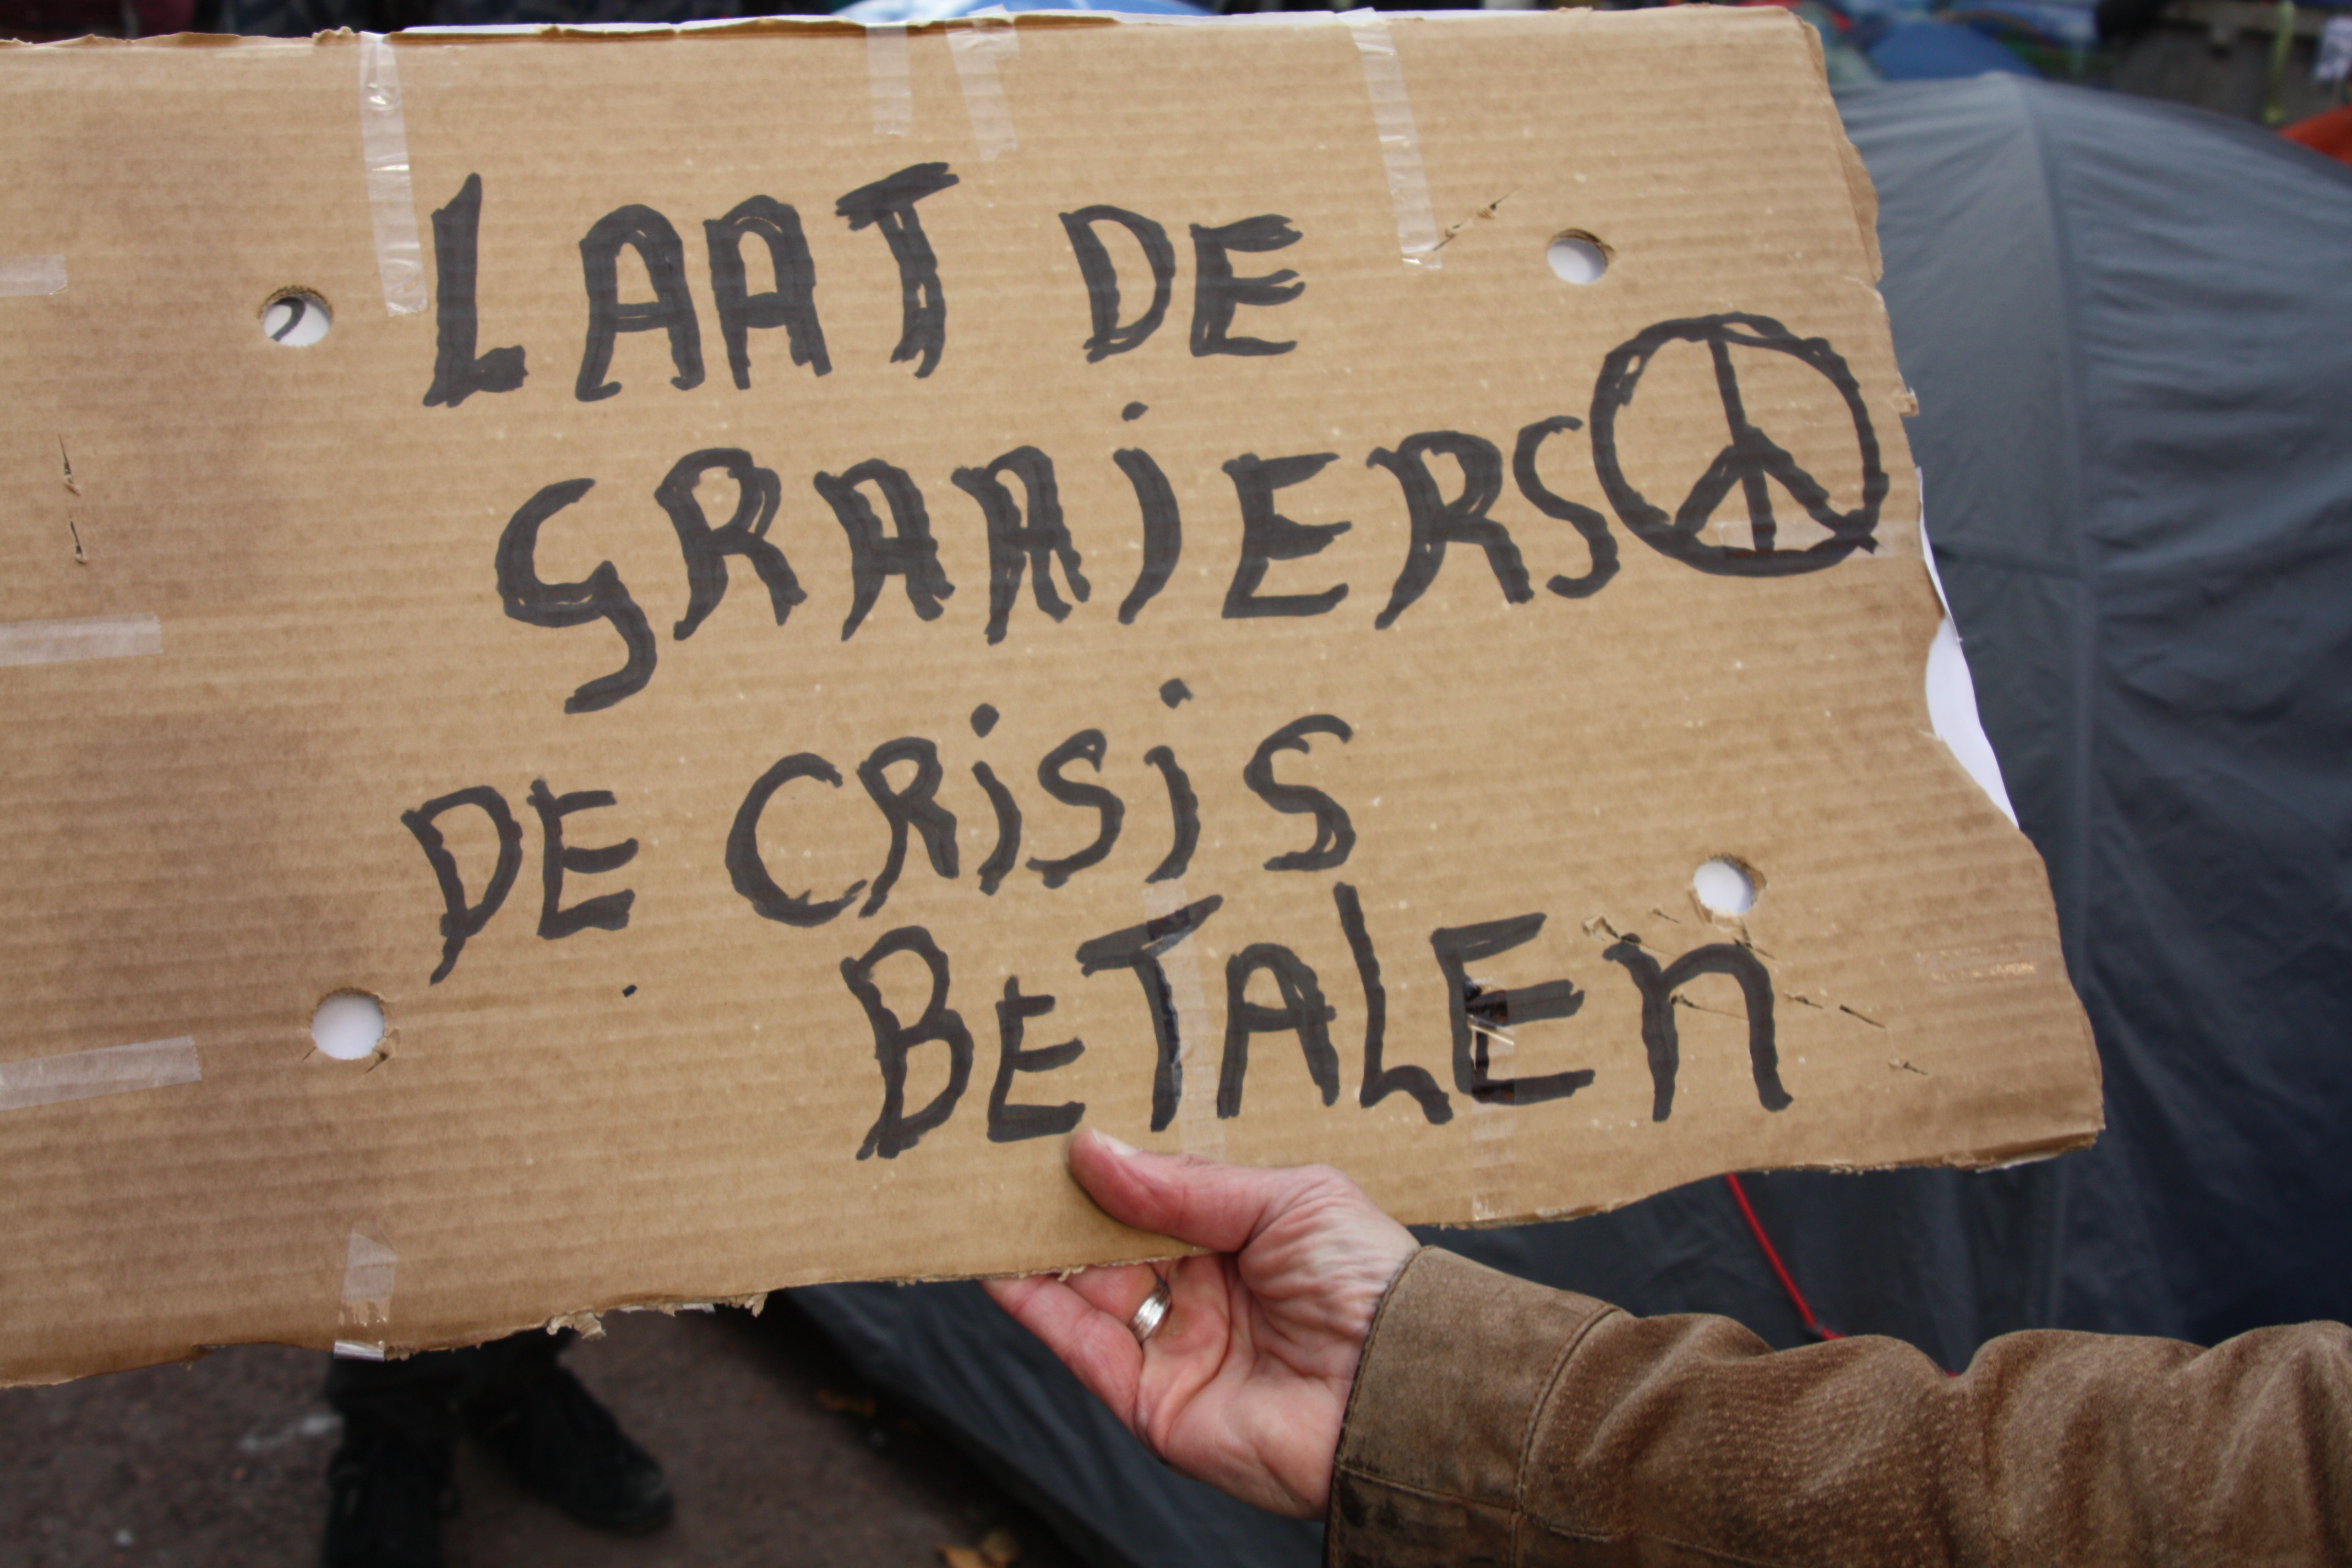 LAAT DE
GRAAIERS
DE CRISIS
BETALEN